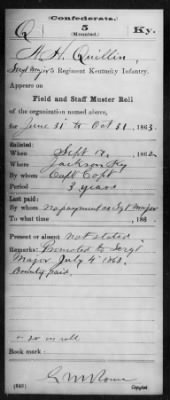 Confederate.
Q 5 Ky.
(Mounted.)
H. H. Quillin
Sergt Major 5 Regiment Kentucky Infantry.
Appears on
Field and Staff Muster Roll
of the organization named above,
for June 31 to Oct 31, 1863.
Enlisted:
When Sept 17, 1862
Where Jackson Ky
By whom Capt
Period 3 years
Last paid:
By whom no payment as Sgt Major
To what time , 186 .
Present or absent not stated
Remarks: Promoted to Sergt
Major July 4th 1863.
Bounty paid.
on roll
Book mark:
(640) Copyist.